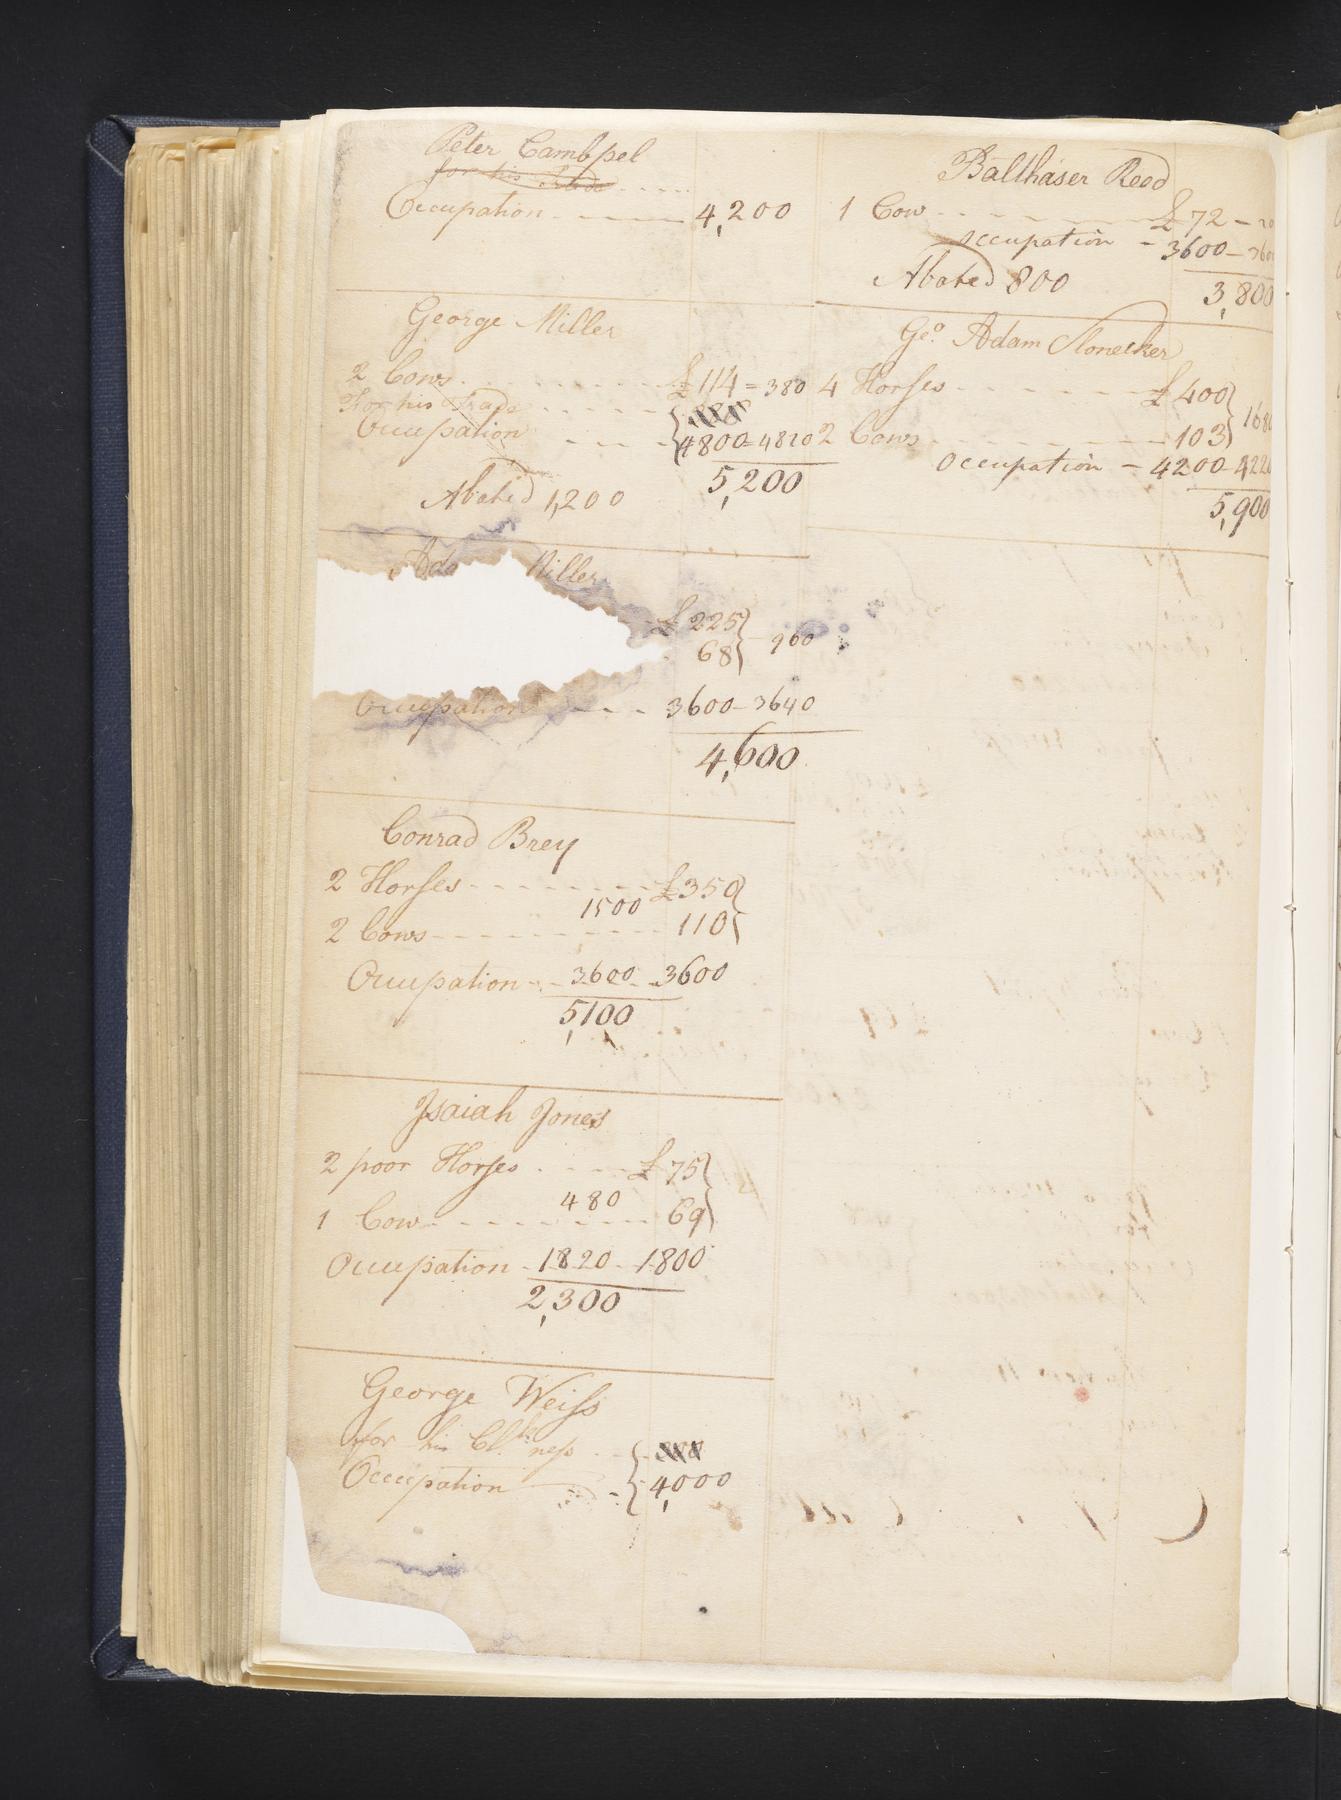 Peter Cambpel
for his Trade
Occupation 4,200
George Miller
2 Cows £114 = 380
For his Trade
Occupation 4800 = 4820
5,200
Abated 1,200
Ada Miller
£ 225
68 } 960
Occupation 3600 - 3640
4,600
Conrad Brey
2 Horses £350
1500
2 Cows 110
Occupation 3600 3600
5,100
Isaiah Jones
2 poor Horses £ 75
480
1 Cow 69
Occupation 1820 1800
2,300
George Weiss
for his
Occupation 4,000
Balthaser Reed
1 Cow £ 72
occupation 3600
Abated 800
3,800
Geo. Adam Slonecker
4 Horses £ 400
2 Cows 103
Occupation 4200
5,900